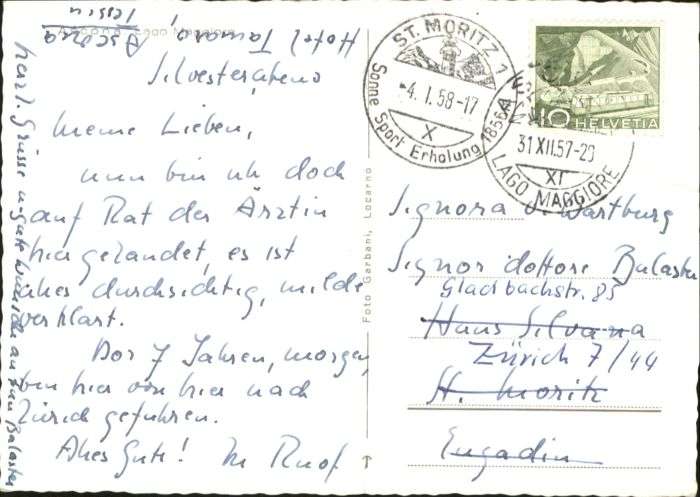 Hotel Tamaro, Ascona
Tessin
Lago Maggiore
Silvesterabend
Meine Lieben,
nun bin ich doch
auf Rat der Ärztin
hier gelandet, es ist
alles durchsichtig, milde
verklärt.
Vor 7 Jahren, morgen,
bin hier von hier nach
Zürich gefahren.
Alles Gute! Ihr Ruof
herzl. Grüsse u. gute Wünsche an Balaster
Foto Garbani, Locarno
ST. MORITZ 1
-4.I.58-17
X
Sonne Sport Erholung 1856
HELVETIA
10
31 XII.57-20
XI
LAGO MAGGIORE
Signora v. Wartburg
Signor dottore Balaster
Gladbachstr. 85
Haus Silvana
Zürich 7/44
St. Moritz
Engadin